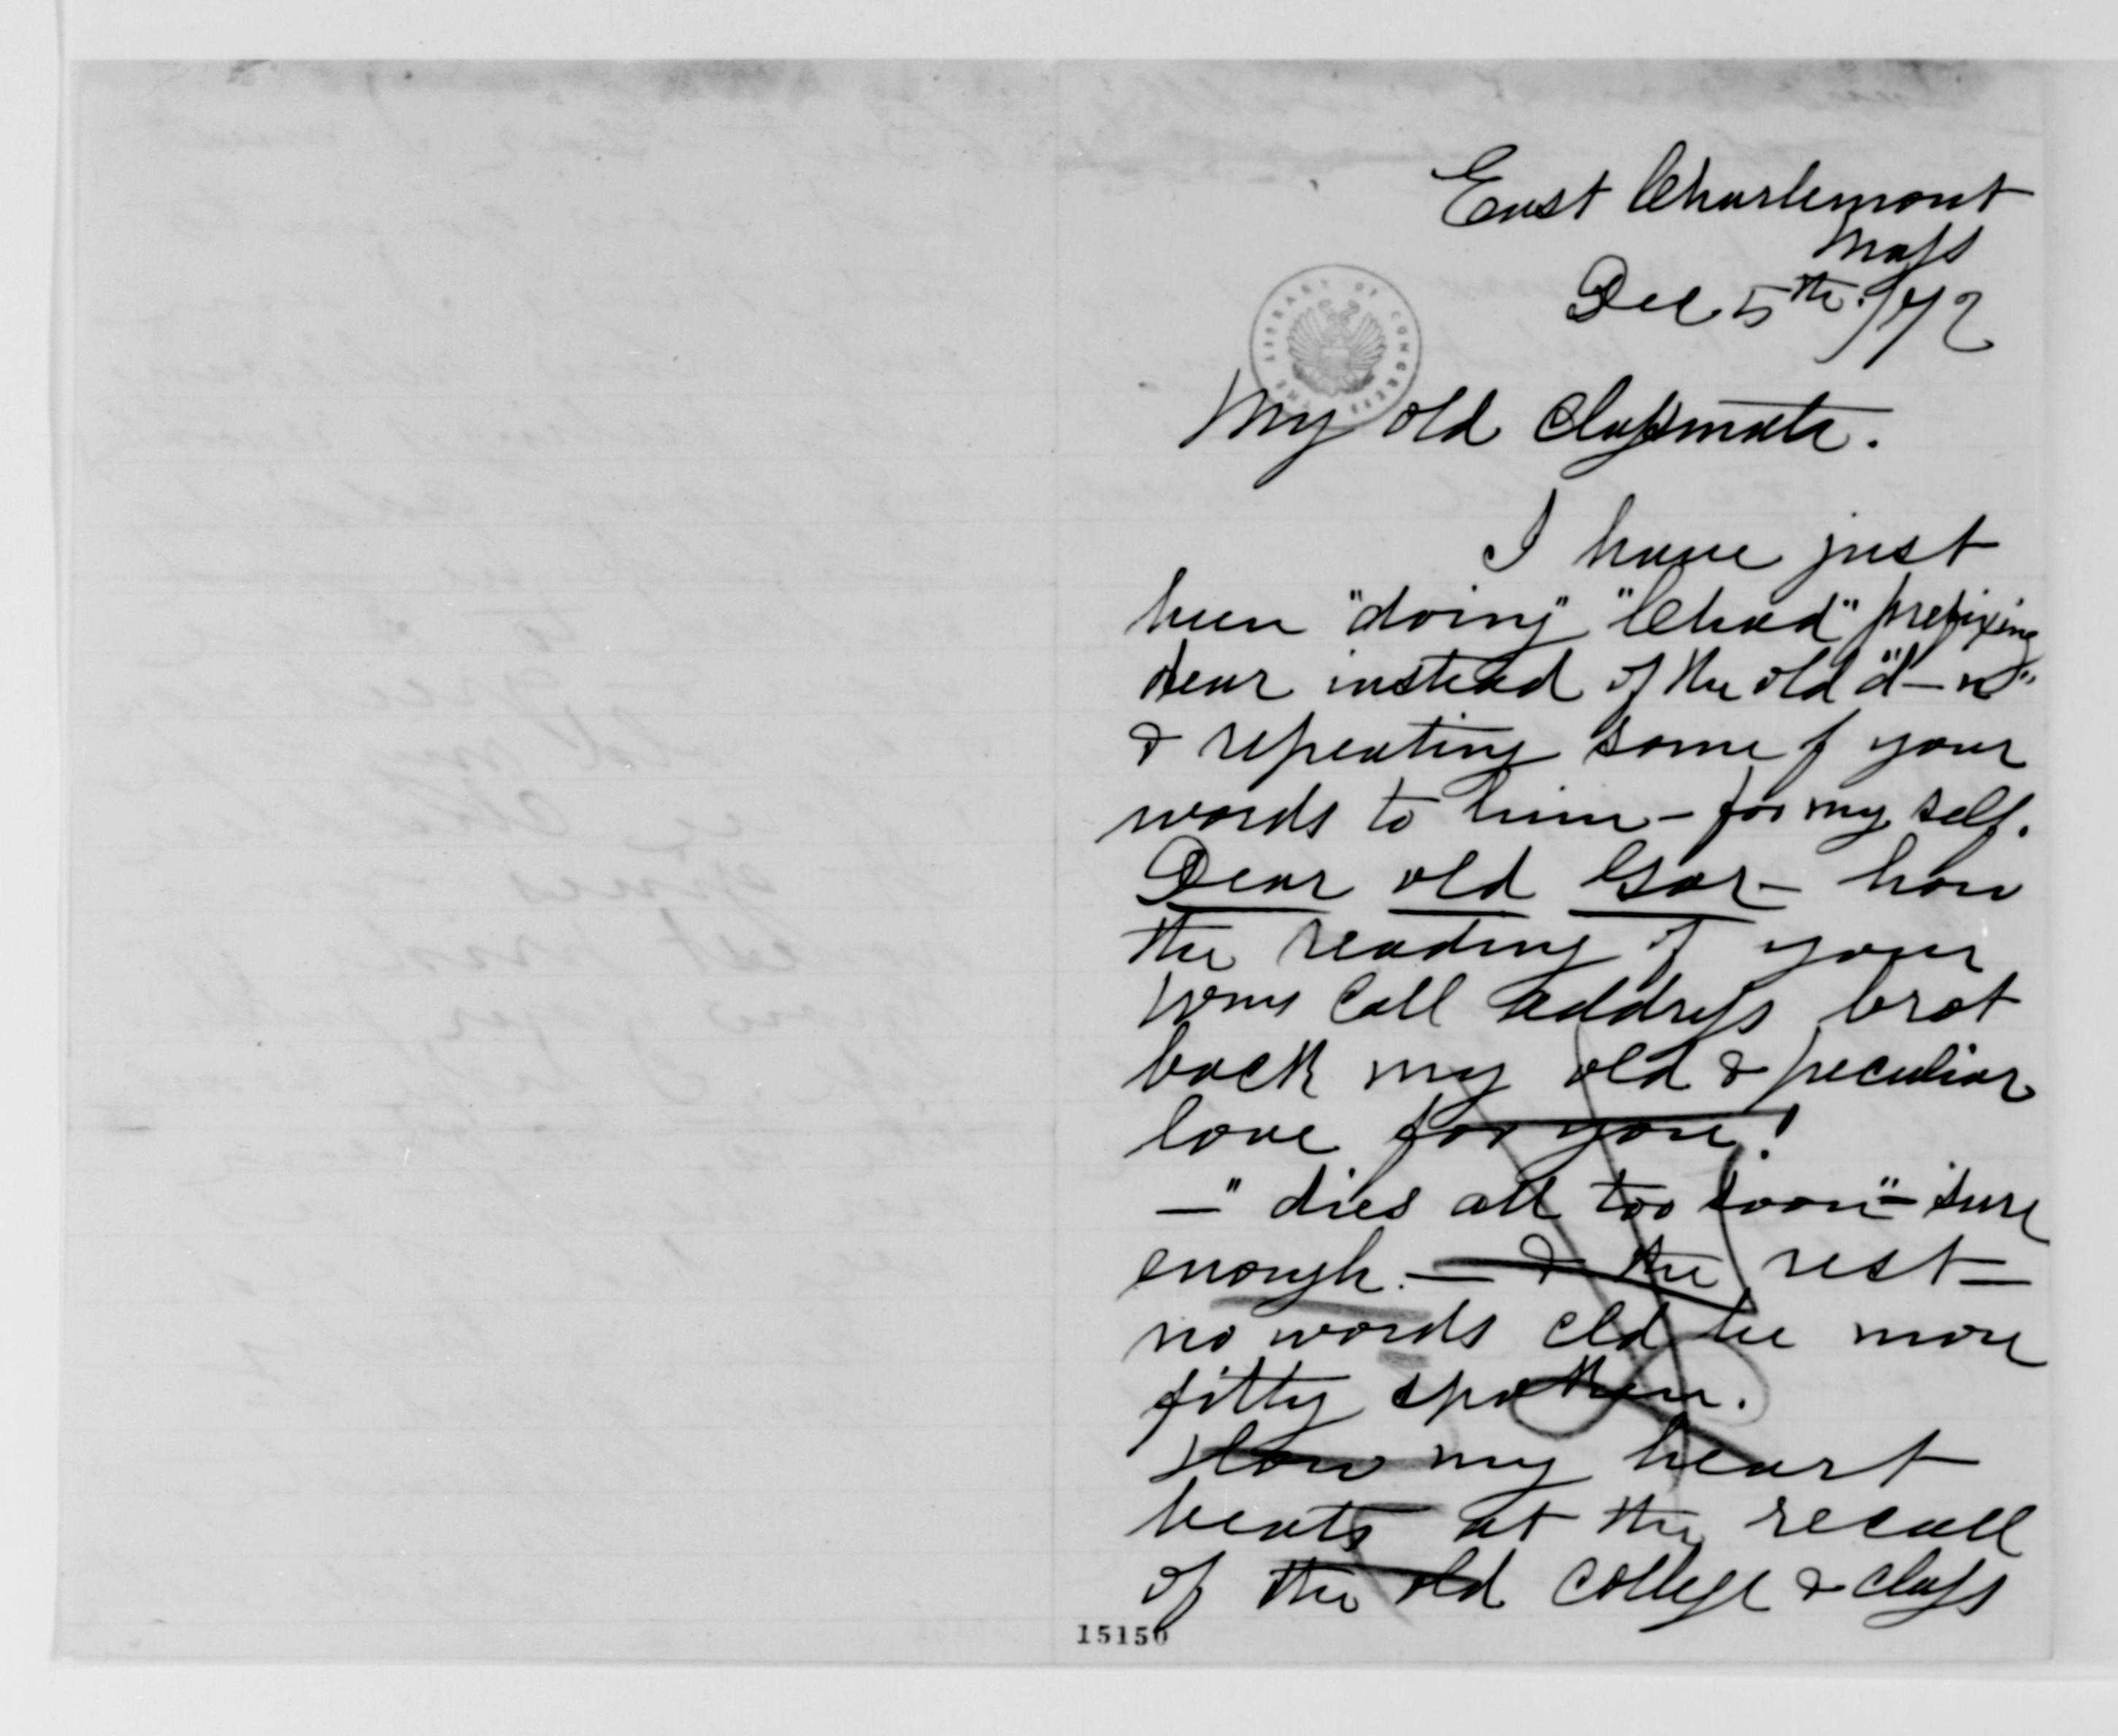 East Charlemont
Mass
Dec 5th /72
THE LIBRARY OF CONGRESS
My old Classmate.
I have just
been "doing" "Chad" prefixing
dear instead of the old "d—n"
& repeating some of your
words to him — for my self.
Dear old Gar — how
the reading of your
Wms Coll address brot
back my old & peculiar
love for you!
— "dies all too soon" — sure
enough. — & the rest —
no words cld be more
fitty spoken.
How my heart
beats at the recall
of the old College & class
15150